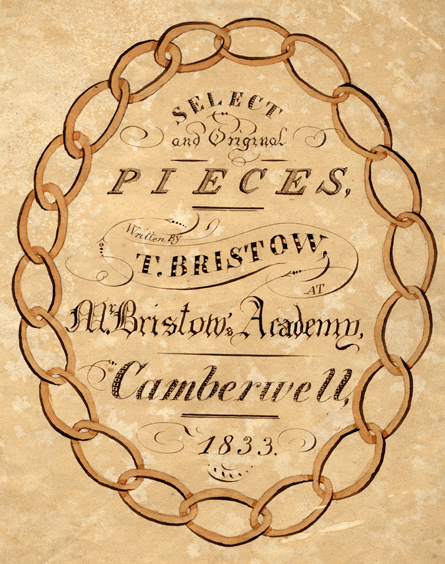 SELECT
and Original
PIECES,
Written By
T. BRISTOW,
AT
Mr. Bristow's Academy,
Camberwell,
1833.